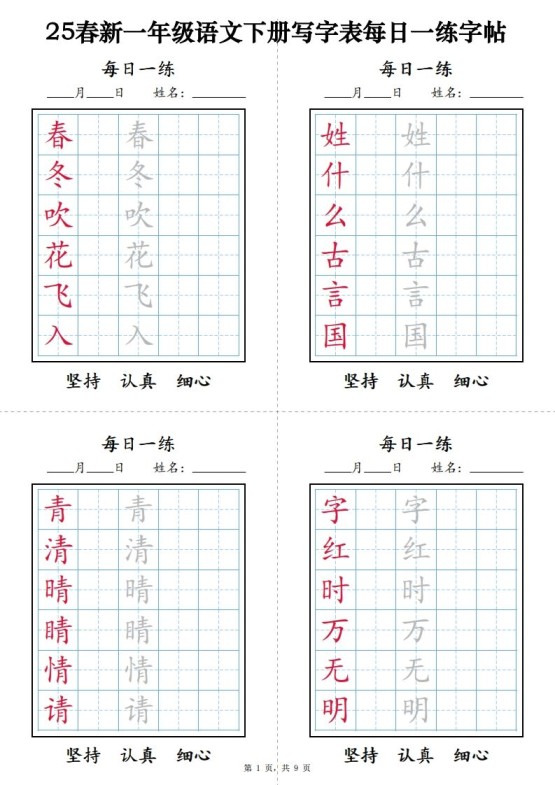 25春新一年级语文下册写字表每日一练字帖
每日一练
____月____日 姓名：________
春 春
冬 冬
吹 吹
花 花
飞 飞
入 入
坚持 认真 细心
每日一练
____月____日 姓名：________
姓 姓
什 什
么 么
古 古
言 言
国 国
坚持 认真 细心
每日一练
____月____日 姓名：________
青 青
清 清
晴 晴
睛 睛
情 情
请 请
坚持 认真 细心
每日一练
____月____日 姓名：________
字 字
红 红
时 时
万 万
无 无
明 明
坚持 认真 细心
第 1 页，共 9 页